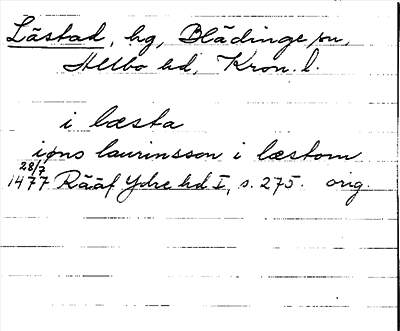 Låstad, hg, Blädinge sn,
Allbo hd, Kron. l.
i læsta
iøns laurinsson i læstom
28/7
1477 Rääf Ydre hd I, s. 275. orig.